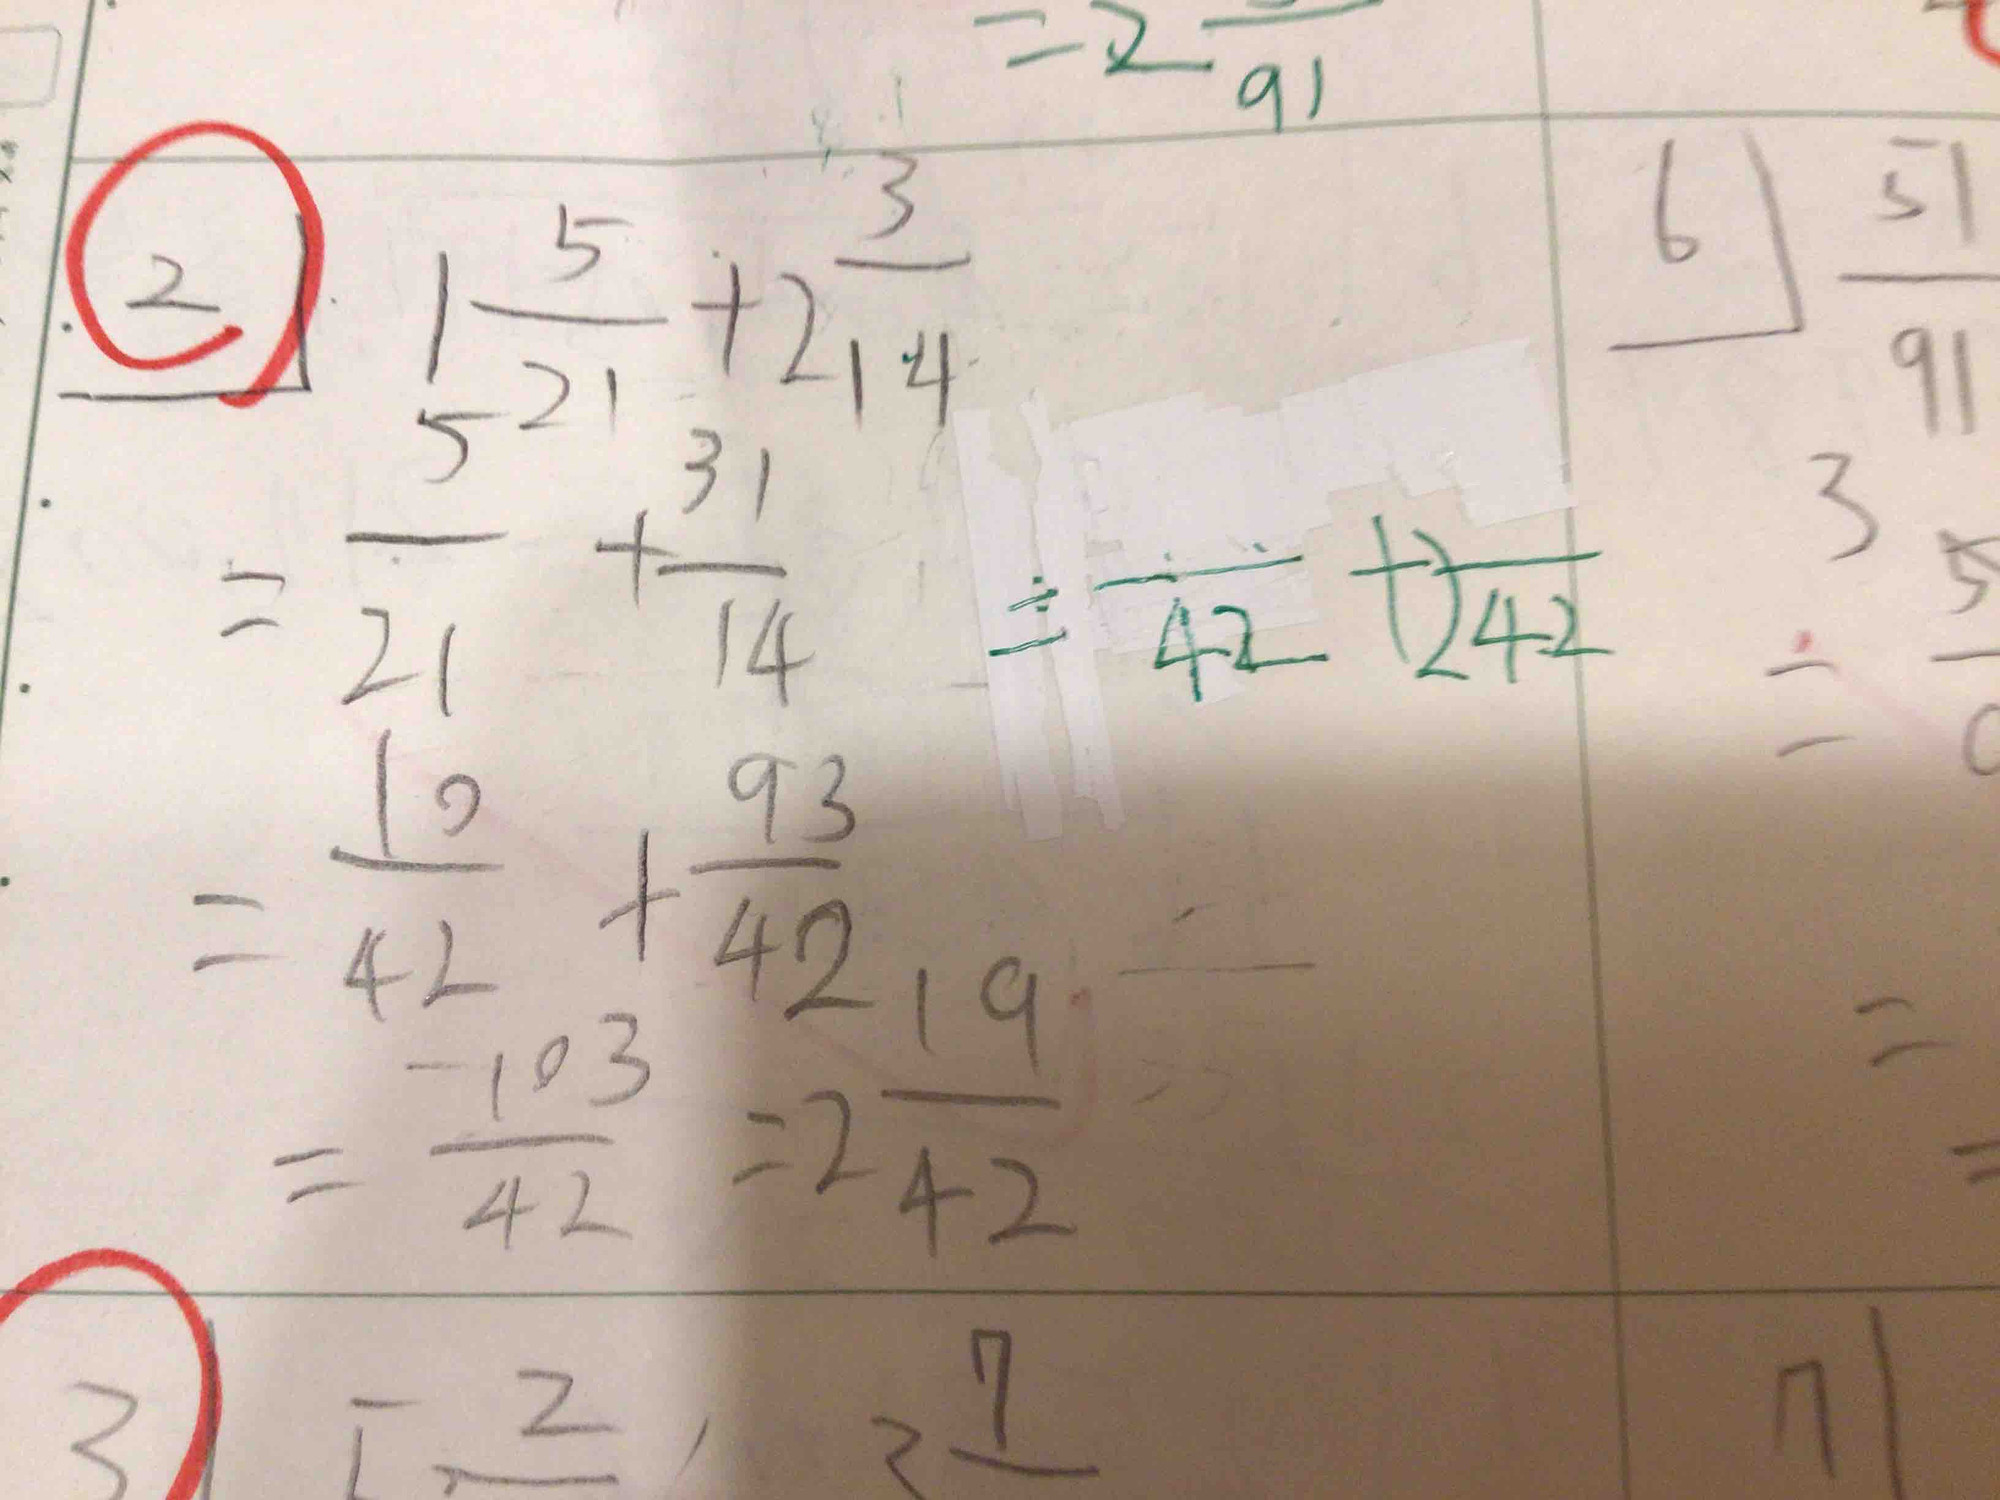 = 2 — 91
2 1 5/21 + 2 3/14
= 5/21 + 31/14 = —/42 + 2 —/42
= 10/42 + 93/42
= 103/42 = 2 19/42
6 51/91
3
=
=
=
3 5 2/ 3 7/
7